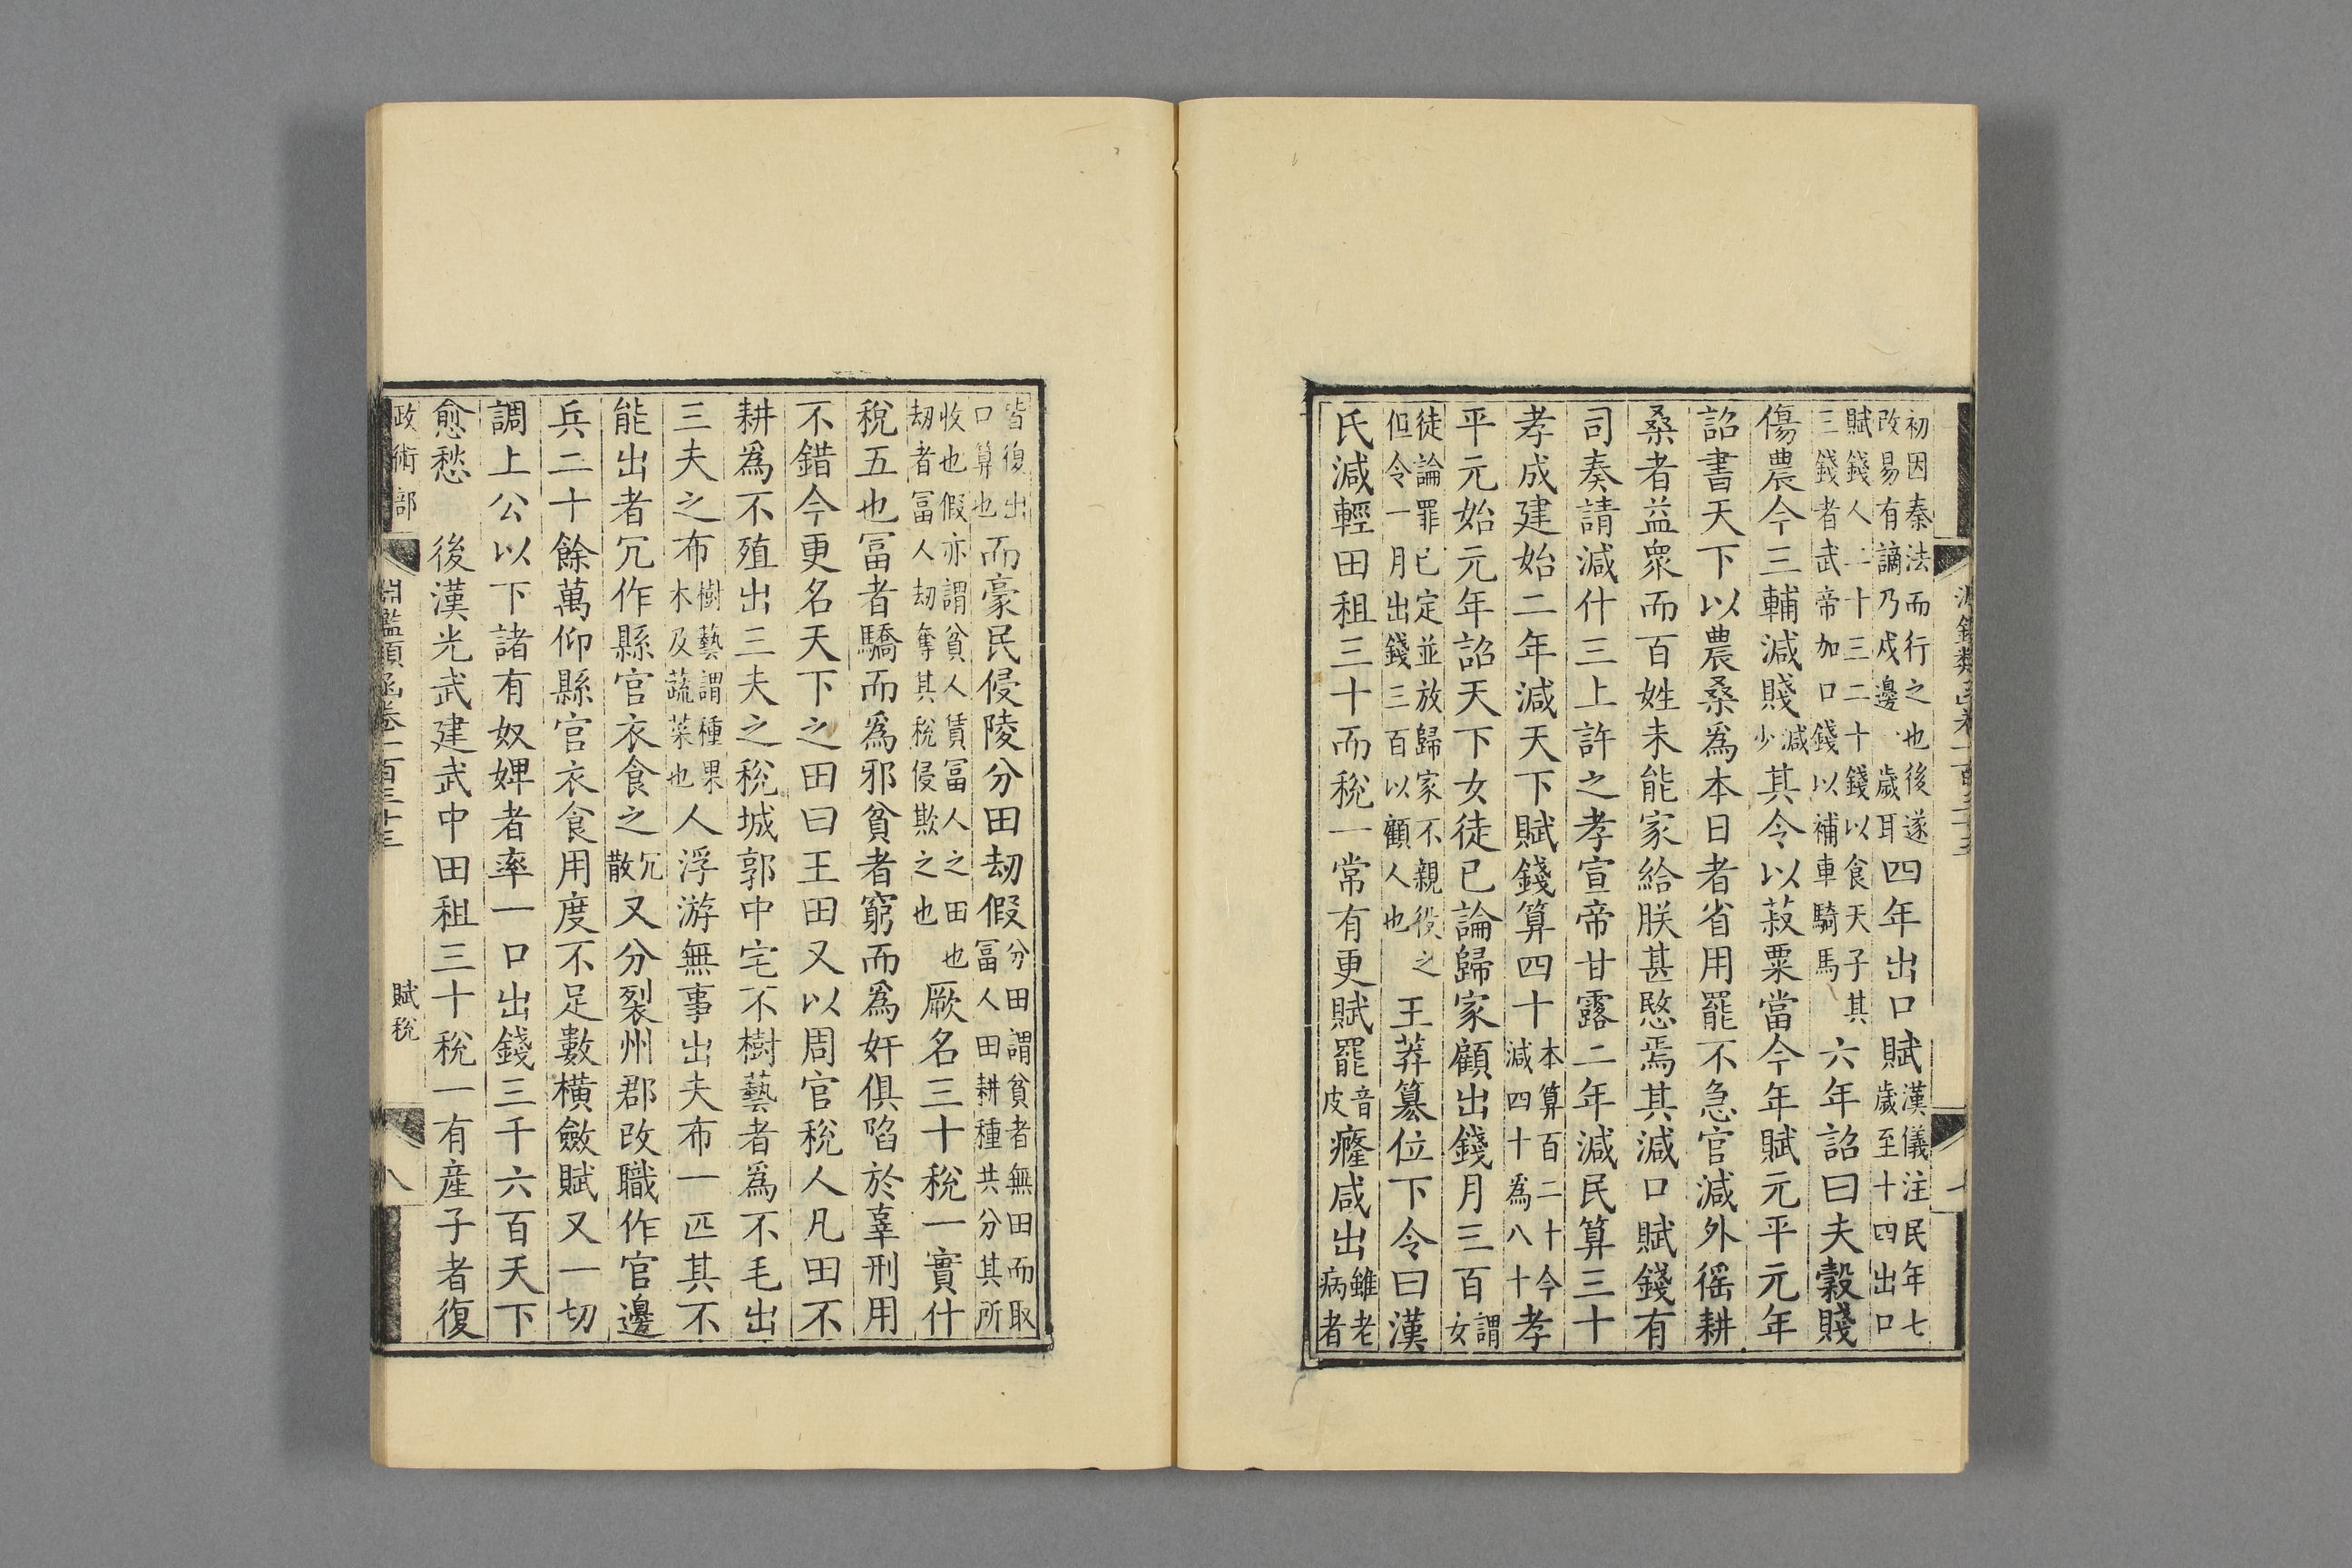 初因秦法而行之也後遂改易有謫乃戍邊一歲耳四年出口賦漢儀注民年七歲至十四出口
賦錢人二十三二十錢以食天子其三錢者武帝加口錢以補車騎馬六年詔曰夫穀賤
傷農今三輔減賤減少其令以菽粟當今年賦元平元年
詔書天下以農桑為本日者省用罷不急官減外徭耕
桑者益衆而百姓未能家給朕甚愍焉其減口賦錢有
司奏請減什三上許之孝宣帝甘露二年減民算三十
孝成建始二年減天下賦錢算四十本算百二十今減四十為八十孝
平元始元年詔天下女徒已論歸家顧出錢月三百謂女
徒論罪已定並放歸家不親役之但令一月出錢三百以顧人也王莽簒位下令曰漢
氏減輕田租三十而稅一常有更賦罷音皮癃咸出雖老病者
皆復出口算也而豪民侵陵分田刧假分田謂貧者無田而取富人田耕種共分其所
收也假亦謂貧人賃冨人之田也刧者冨人刧奪其稅侵欺之也厥名三十稅一實什
稅五也冨者驕而為邪貧者窮而為奸俱陷於辜刑用
不錯今更名天下之田曰王田又以周官稅人凡田不
耕為不殖出三夫之稅城郭中宅不樹藝者為不毛出
三夫之布樹藝謂種果木及蔬菜也人浮游無事出夫布一匹其不
能出者冗作縣官衣食之冗散又分裂州郡改職作官邊
兵二十餘萬仰縣官衣食用度不足數橫斂賦又一切
調上公以下諸有奴婢者率一口出錢三千六百天下
愈愁　後漢光武建武中田租三十稅一有產子者復
政術部　淵鑑類函卷一百三十三　賦稅　八